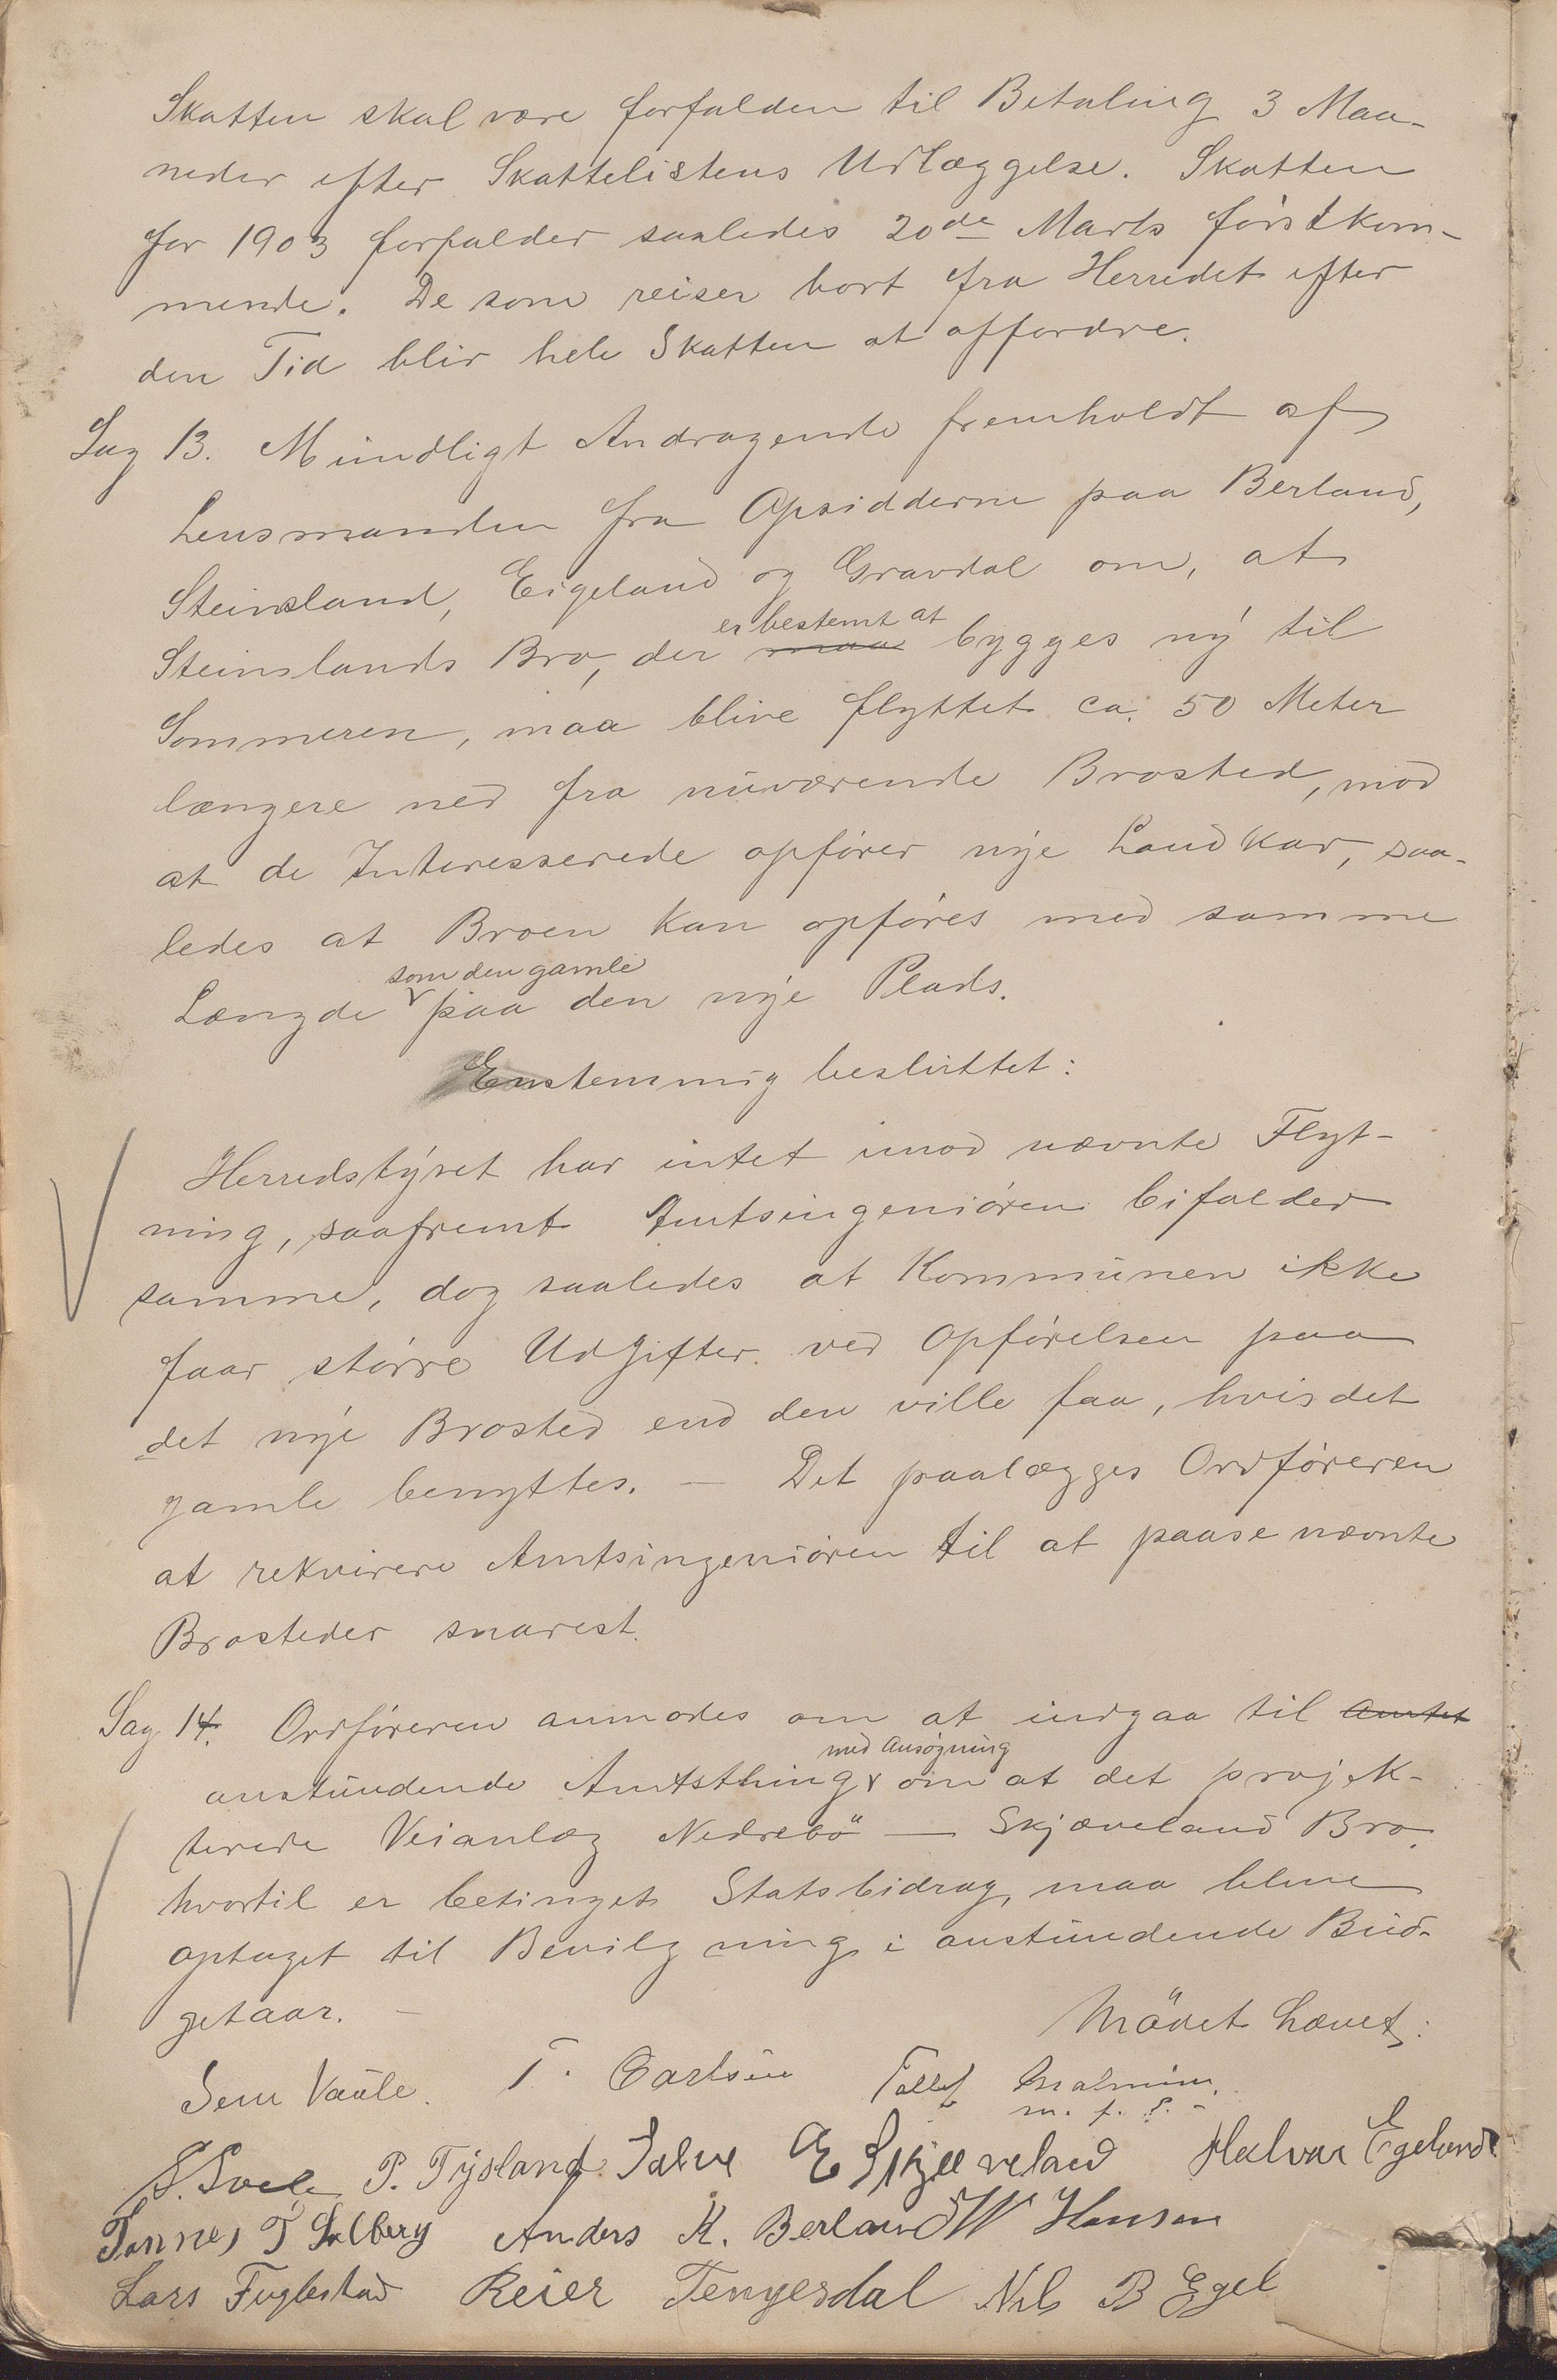 Skatten skal være forfalden til Betaling 3 Maa-
neder efter Skattelistens Udlæggelse. Skatten
for 1903 forfalder saaledes 20de Marts førstkom-
mende. De som reiser bort fra Herredet efter
den Tid blir hele Skatten at affordre.
Sag 13. Mundligt Andragende fremholdt af
Lensmanden fra Opsidderne paa Berland,
Steinsland, Eigeland og Gravdal om, at
er bestemt at
Steinslands Bro, der maa bygges ny til
Sommeren, maa blive flyttet ca. 50 Meter
længere ned fra nuværende Brosted, mod
at de Interesserede opfører nye Landkar, saa-
ledes at Broen kan opføres med samme
som den gamle
Længde paa den nye Plads.
Enstemmig besluttet:
Herredstyret har intet imod nævnte Flyt-
ning, saafremt Amtsingeniøren bifalder
samme, dog saaledes at Kommunen ikke
faar større Udgifter ved Opførelsen paa
det nye Brosted end den ville faa, hvis det
gamle benyttes. — Det paalægges Ordføreren
at rekvirere Amtsingeniøren til at paase nævnte
Brosteder snarest.
Sag 14. Ordføreren anmodes om at indgaa til Amtet
med Ansøgning
anstundende Amtsthing om at det projek-
terede Veianlæg Nedrebö — Skjæveland Bro,
hvortil er betinget Statsbidrag, maa blive
optaget til Bevilgning i anstundende Bud-
getaar. —
Mödet hævet:
Sem Vaule. T. Carlsen Tollef Malmin
m. f. P.
S. Svele P. Tysland Salve E Skjæveland Halvar Egeland
Tønnes T Solberg Anders K. Berland W Hansen
Lars Fuglestad Reier Tengesdal Nils B Egel